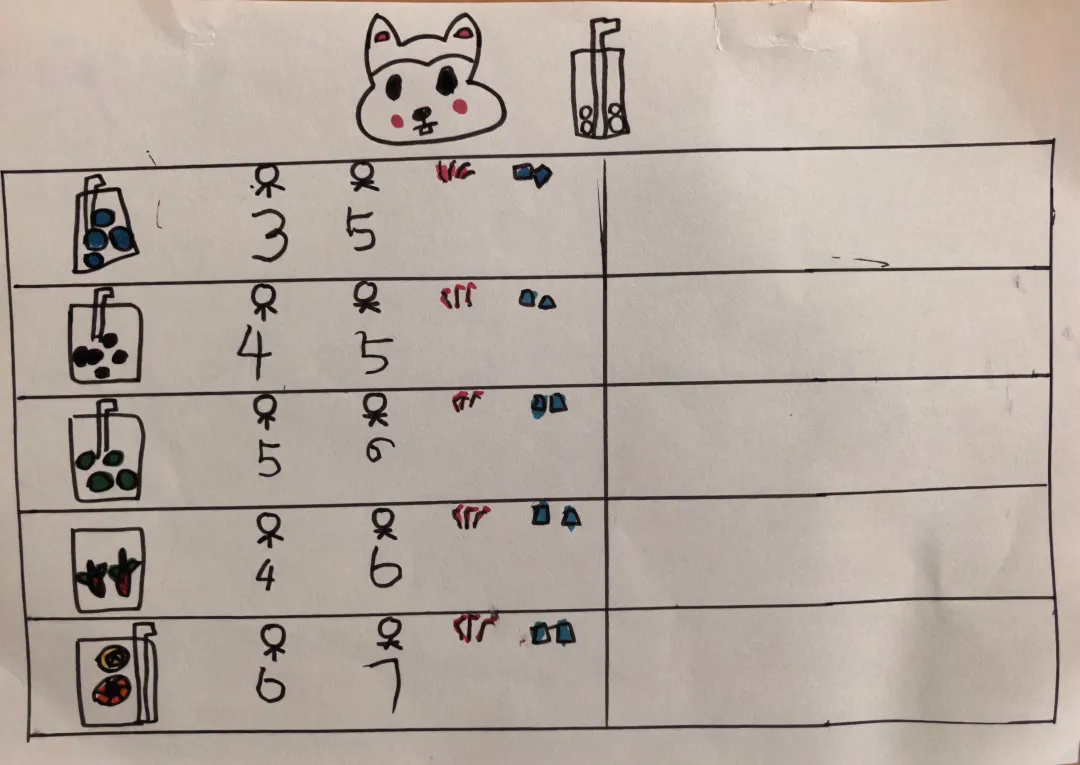 3 5
4 5
5 6
4 6
6 7